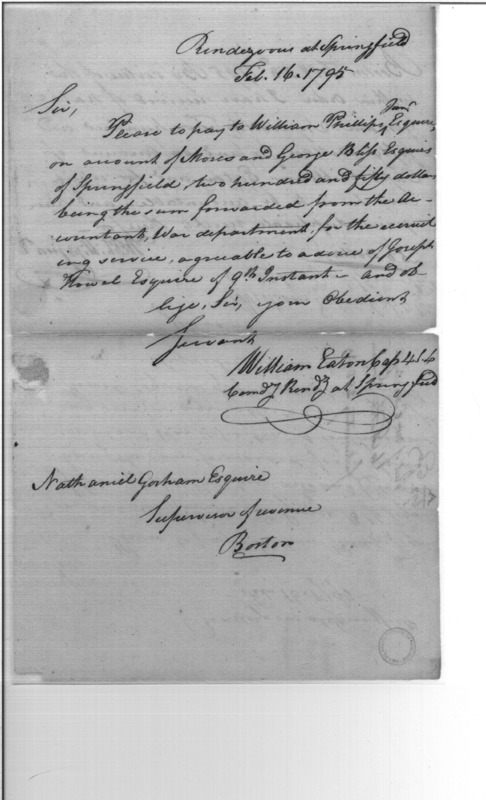 Rendezvous at Springfield
Feb. 16. 1795
Sir,
Please to pay to William Phillips Junr Esquire,
on account of Moses and George Bliss Esquires
of Springfield, two hundred and fifty dollars
being the sum forwarded from the Ac-
countant, War department, for the recruit
ing service, agreeable to advice of Joseph
Howel Esquire of 9th Instant - and ob
lige, Sir, your Obedient
Servant
William Eaton Cap 4 S L
Comdg Rendz at Springfield
Nathaniel Gorham Esquire
Supervisor of revenue
Boston